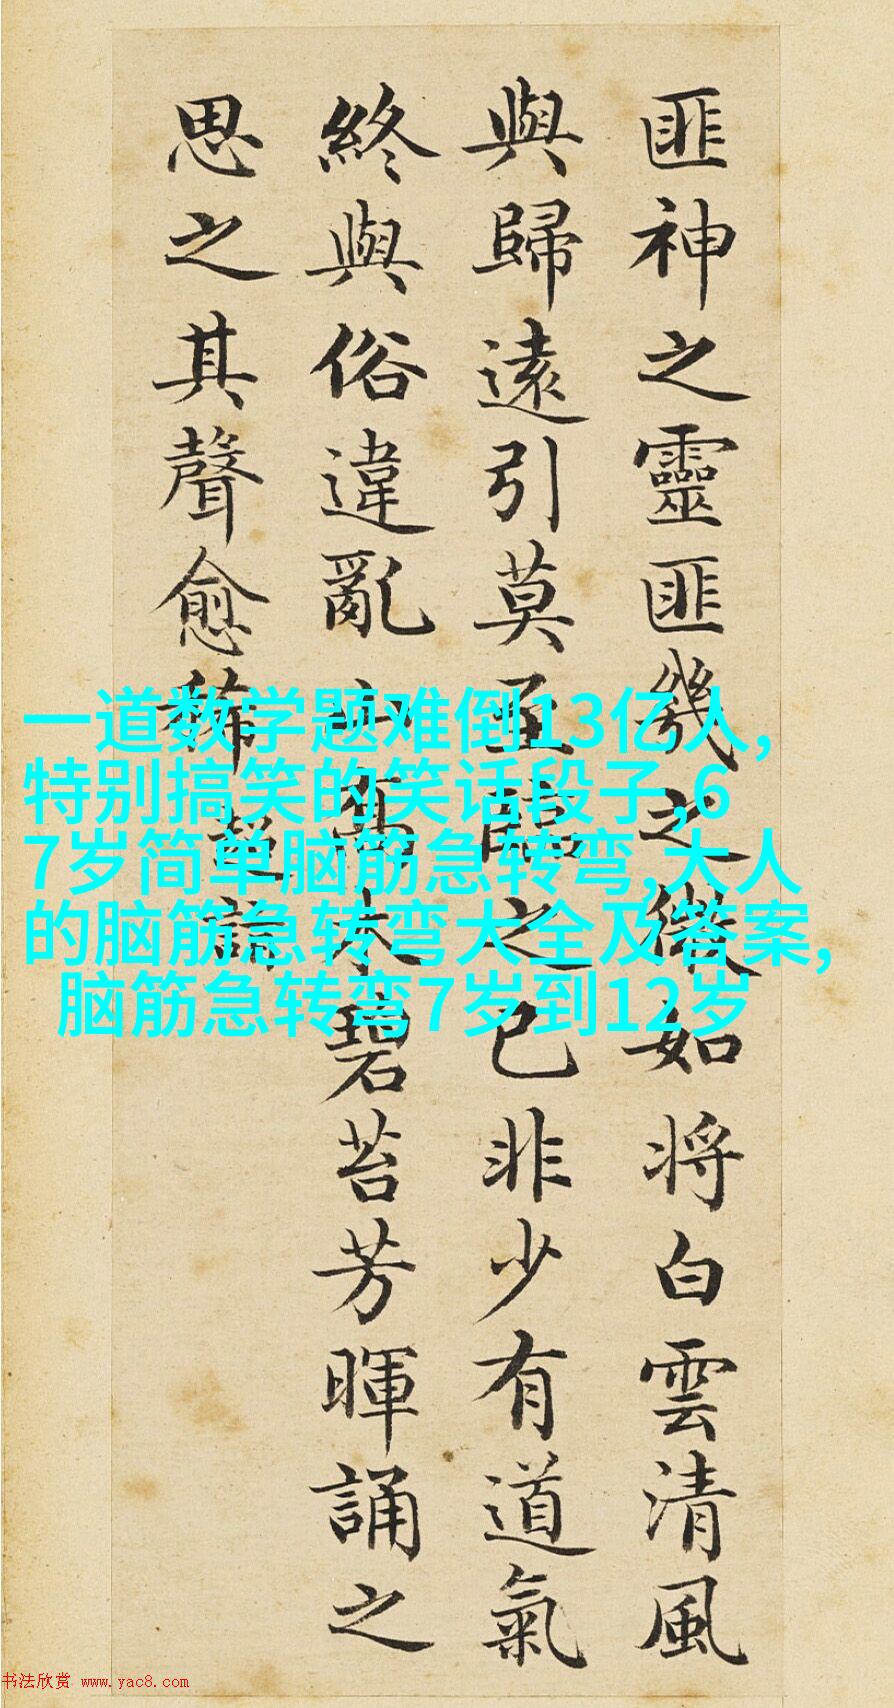 匪神之靈匪幾之微如將白雲清風
與歸遠引莫至臨之已非少有道氣
終與俗違亂山喬木碧苔芳暉誦之
思之其聲愈稀 超詣
一道数学题难倒13亿人,
特别搞笑的笑话段子,6
7岁简单脑筋急转弯,大人
的脑筋急转弯大全及答案,
脑筋急转弯7岁到12岁
书法欣赏 www.yac8.com